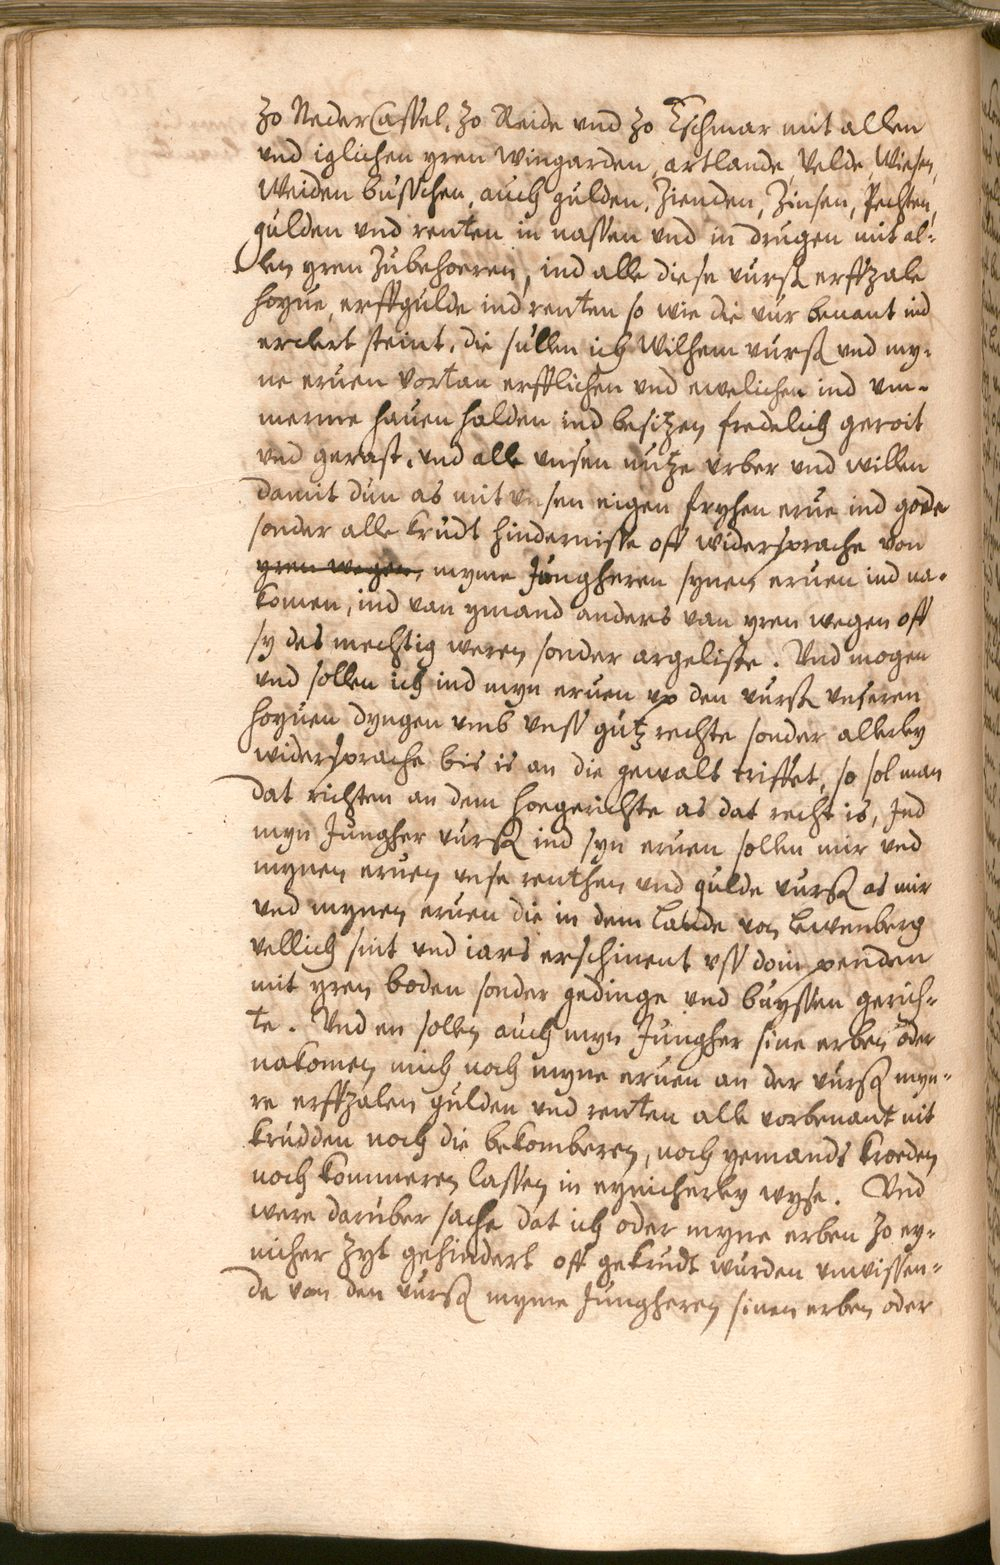 zo NederCassel, zo Reide vnd zo Eschmar mit allen
vnd iglichen yren Wingarden, artlande, Velde, Wiesen,
Weiden büsschen, auch gulden, Zienden, Zinsen, Pechten,
gülden vnd renten in nassen vnd in drugen mit al-
len yren Zubehoeren, ind alle diese vurß erffzale
hoyue, erffgulde ind renten so wie die vur benant ind
erclert steint, die süllen ich Wilhem vurß vnd my-
ne eruen vortan erfflichen vnd ewelichen ind vm-
merme hauen halden ind besitzen fredelich geroit
vnd gerast, vnd alle vnsen nutze vrber vnd willen
damit dün as mit vnsen eigen fryhen erue ind gode
sonder alle krüdt hindernisse off widersprache von
yren wegen, myme Jüngheren synen eruen ind na-
komen, ind van ymand anders van yren wegen off
sy des mechtig weren sonder argeliste. Vnd mogen
vnd sollen ich ind myn eruen vp den vurß vnseren
hoyuen dyngen vmb vnss gutz rechte sonder allerley
widersprache bis is an die gewalt triffet, so sol man
dat richten an dem hoegerichte as dat recht is, Ind
myn Jüngher vurß ind syn eruen sollen mir vnd
mynen eruen vnse renthen vnd gulde vurß as mir
vnd mynen eruen die in dem Lande von Lewenberg
vellich sint vnd iars erschinent vss doin penden
mit yren boden sonder gedinge vnd buyssen gerich-
te. Vnd en sollen auch myn Jüngher sine erben oder
nakomen mich noch myne eruen an der vurß myn-
re erffzalen gulden vnd renten alle vorbenant nit
krüdden noch die bekomberen, noch yemands kroeden
noch kommeren lassen in eynicherley wyse. Vnd
were darüber sache dat ich oder myne erben zo ey-
nicher zyt gehindert off gekrudt würden vmvissen-
de van den vurß myme Jüngheren sinen erben oder